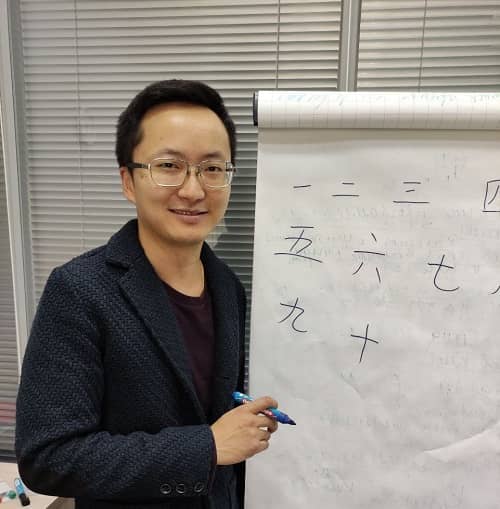 一 二 三 四
五 六 七
九 十